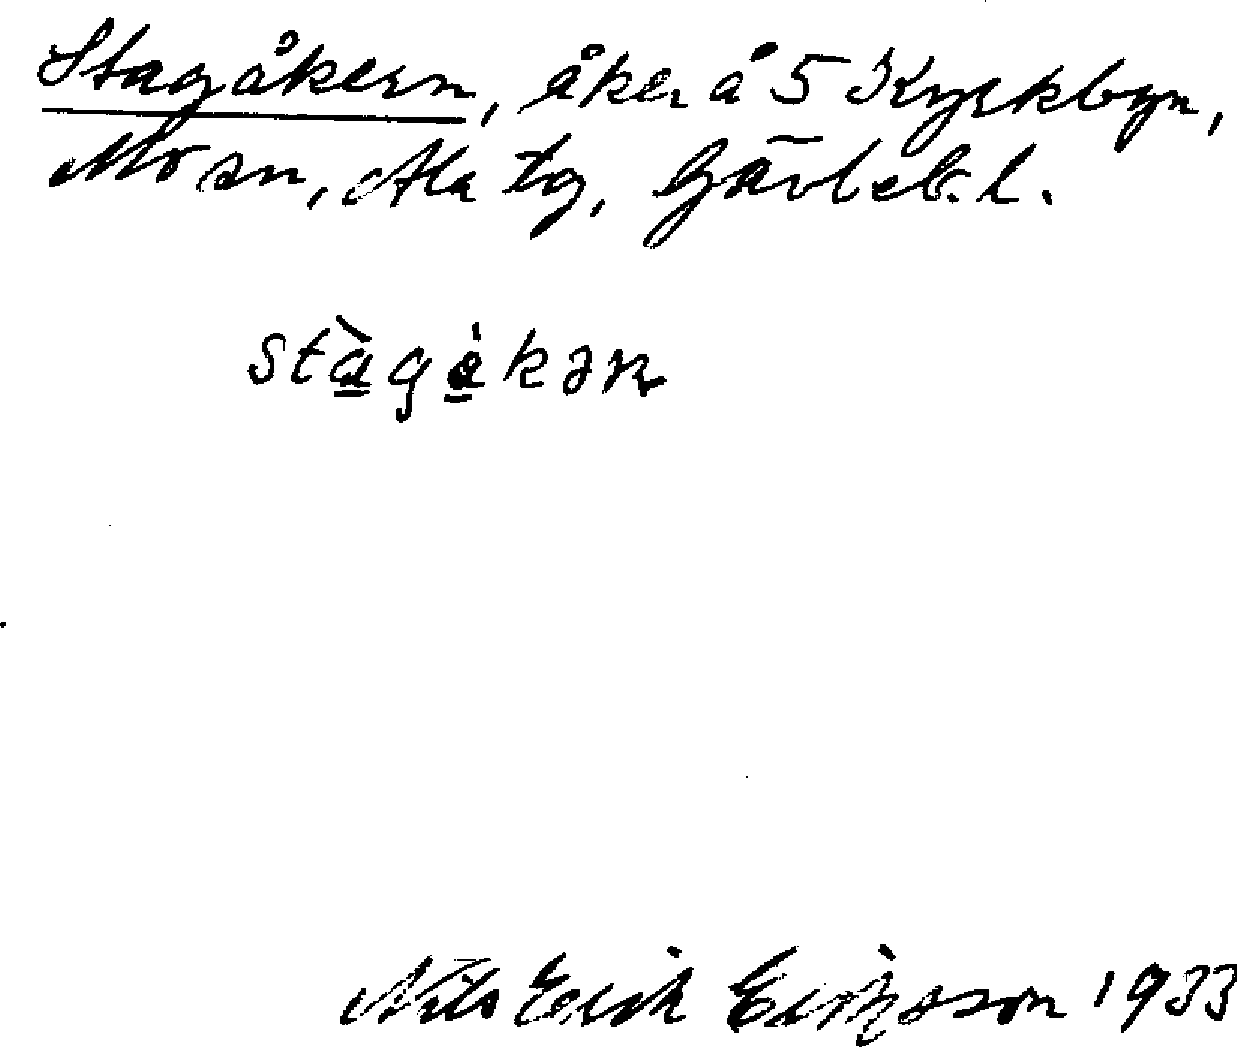 Stagåkern, åker å 5 Kyrkbyn,
Mo sn, Ala tg, Gävleb. l.
stàgàkən
Nils Erik Eriksson 1933